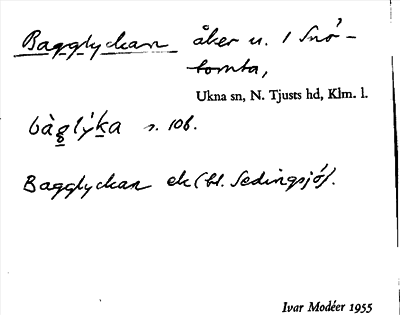 Bagglyckan åker u. 1 Snö-
tomta,
Ukna sn, N. Tjusts hd, Klm. l.
bàglýka s. 106.
Bagglyckan ek (bl. Sedingsjö).
Ivar Modéer 1955